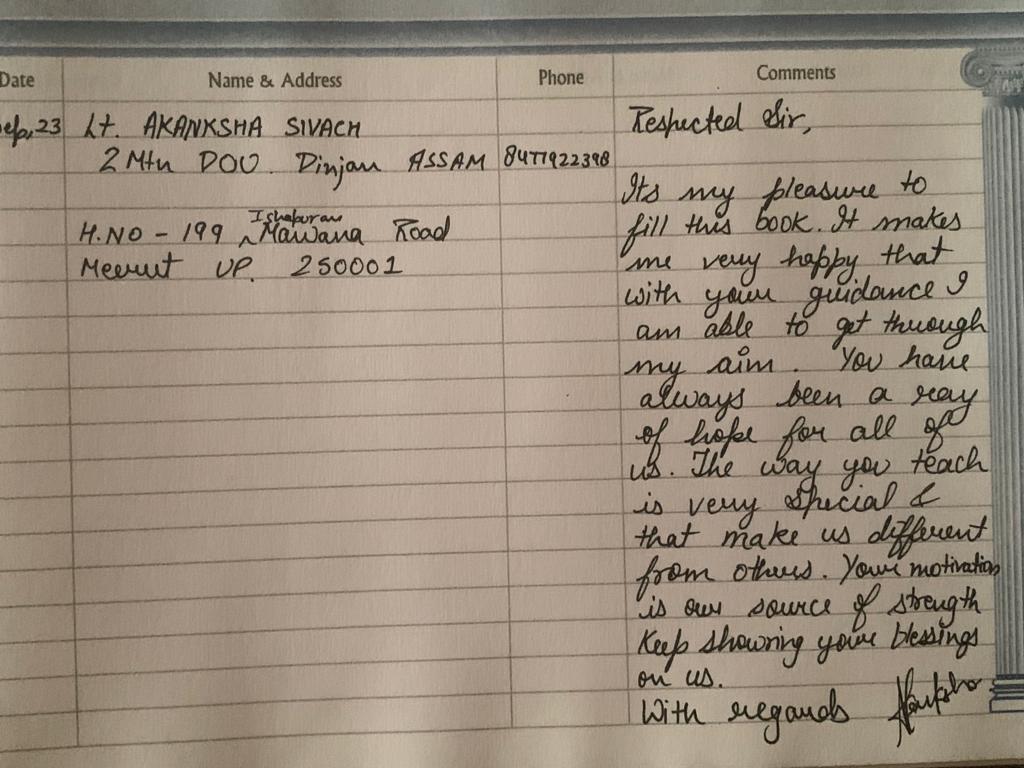 Date Name & Address Phone Comments
Sep, 23 Lt. AKANKSHA SIVACH
2 Mtn DOU. Dinjan ASSAM 8477922398
H.NO - 199 Ishapuram Mawana Road
Meerut UP. 250001
Respected Sir,
Its my pleasure to
fill this book. It makes
me very happy that
with your guidance I
am able to get through
my aim. You have
always been a ray
of hope for all of
us. The way you teach
is very special &
that make us different
from others. Your motivation
is our source of strength
Keep showring your blessings
on us.
With regards